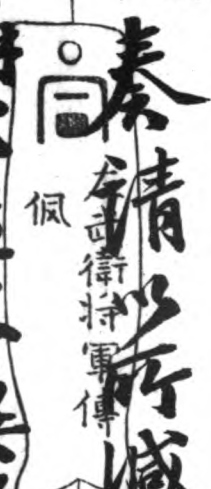 奏請以所減
左武衛將軍傳
佩